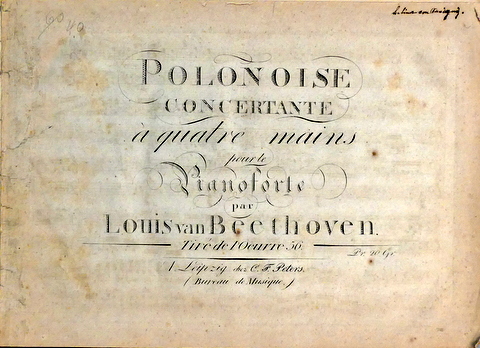 60
POLONOISE
CONCERTANTE
à quatre mains
pour le
Pianoforte
par
Louis van Beethoven.
Tiré de l'Oeuvre 56.
Pr. 20 Gr
à Leipzig chez C. F. Peters.
(Bureau de Musique.)